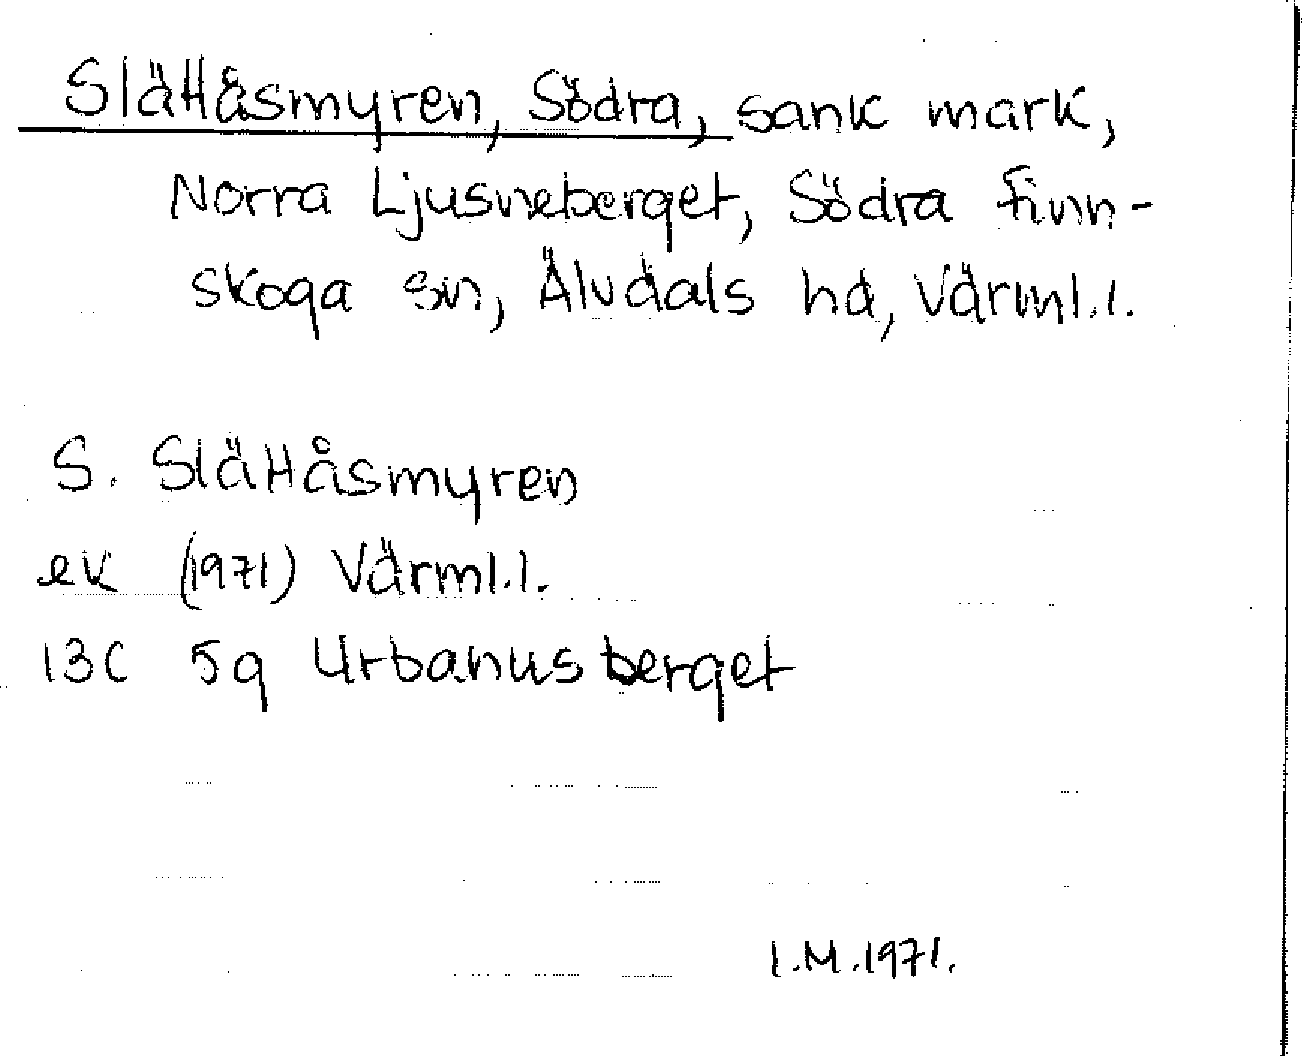 Slättåsmyren, Södra, sank mark,
Norra Ljusneberget, Södra Finn-
skoga sn, Älvdals hd, Värml.l.
S. Slättåsmyren
ek (1971) Värml.l.
13C 5g Urbanusberget
I.M.1971.